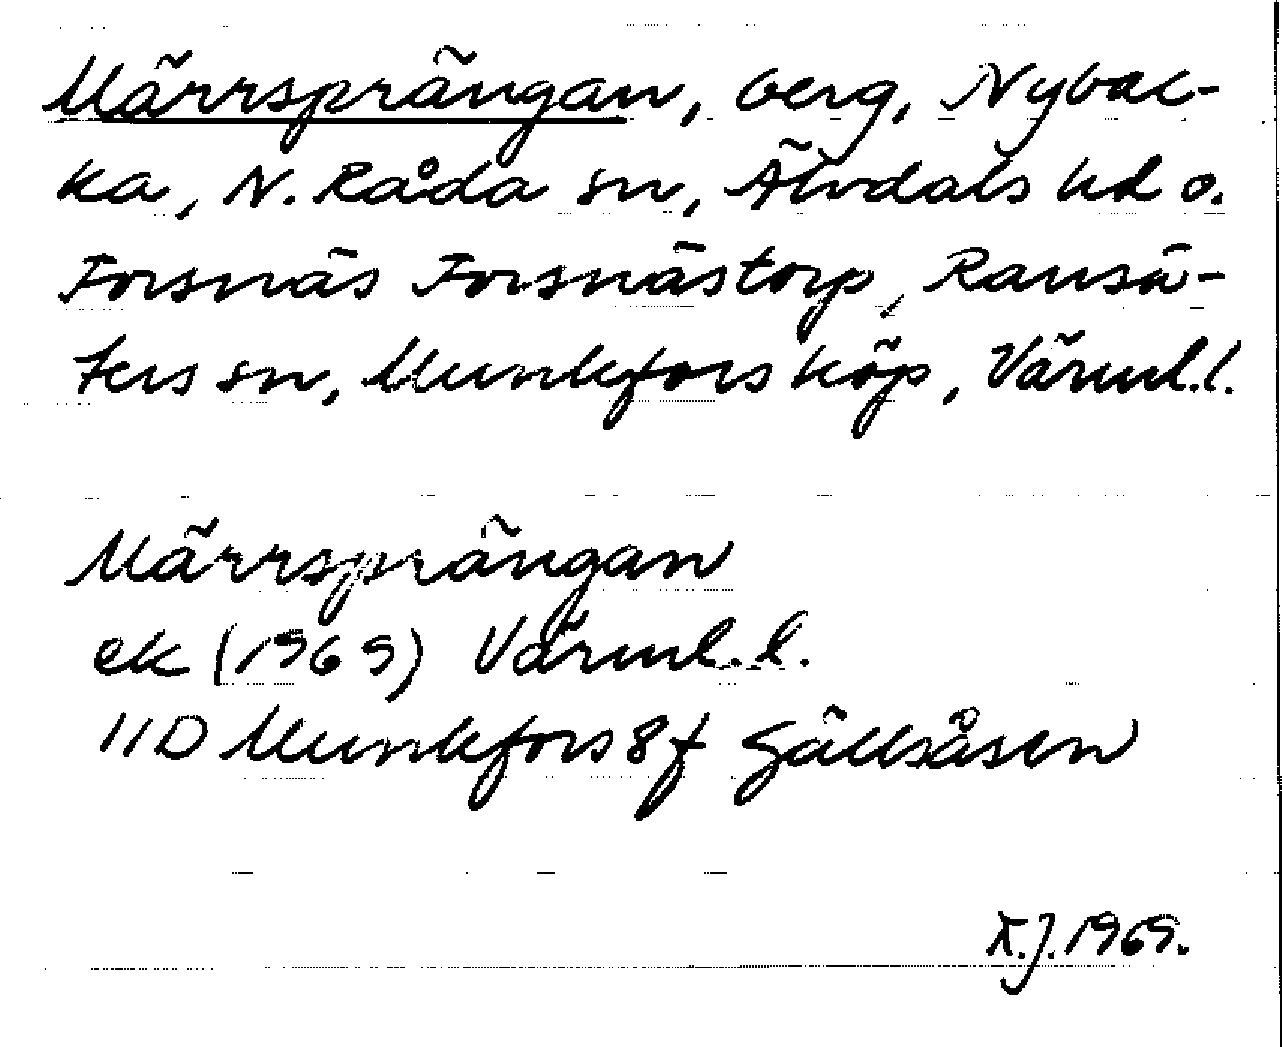 Märrsprängan, berg, Nybac-
ka, N. Råda sn, Älvdals hd o.
Forsnäs Forsnästorp, Ransä-
ters sn, Munkfors köp, Värml.l.
Märrsprängan
ek (1969) Värml.l.
11D Munkfors 8f Gällsåsen
K.J. 1969.